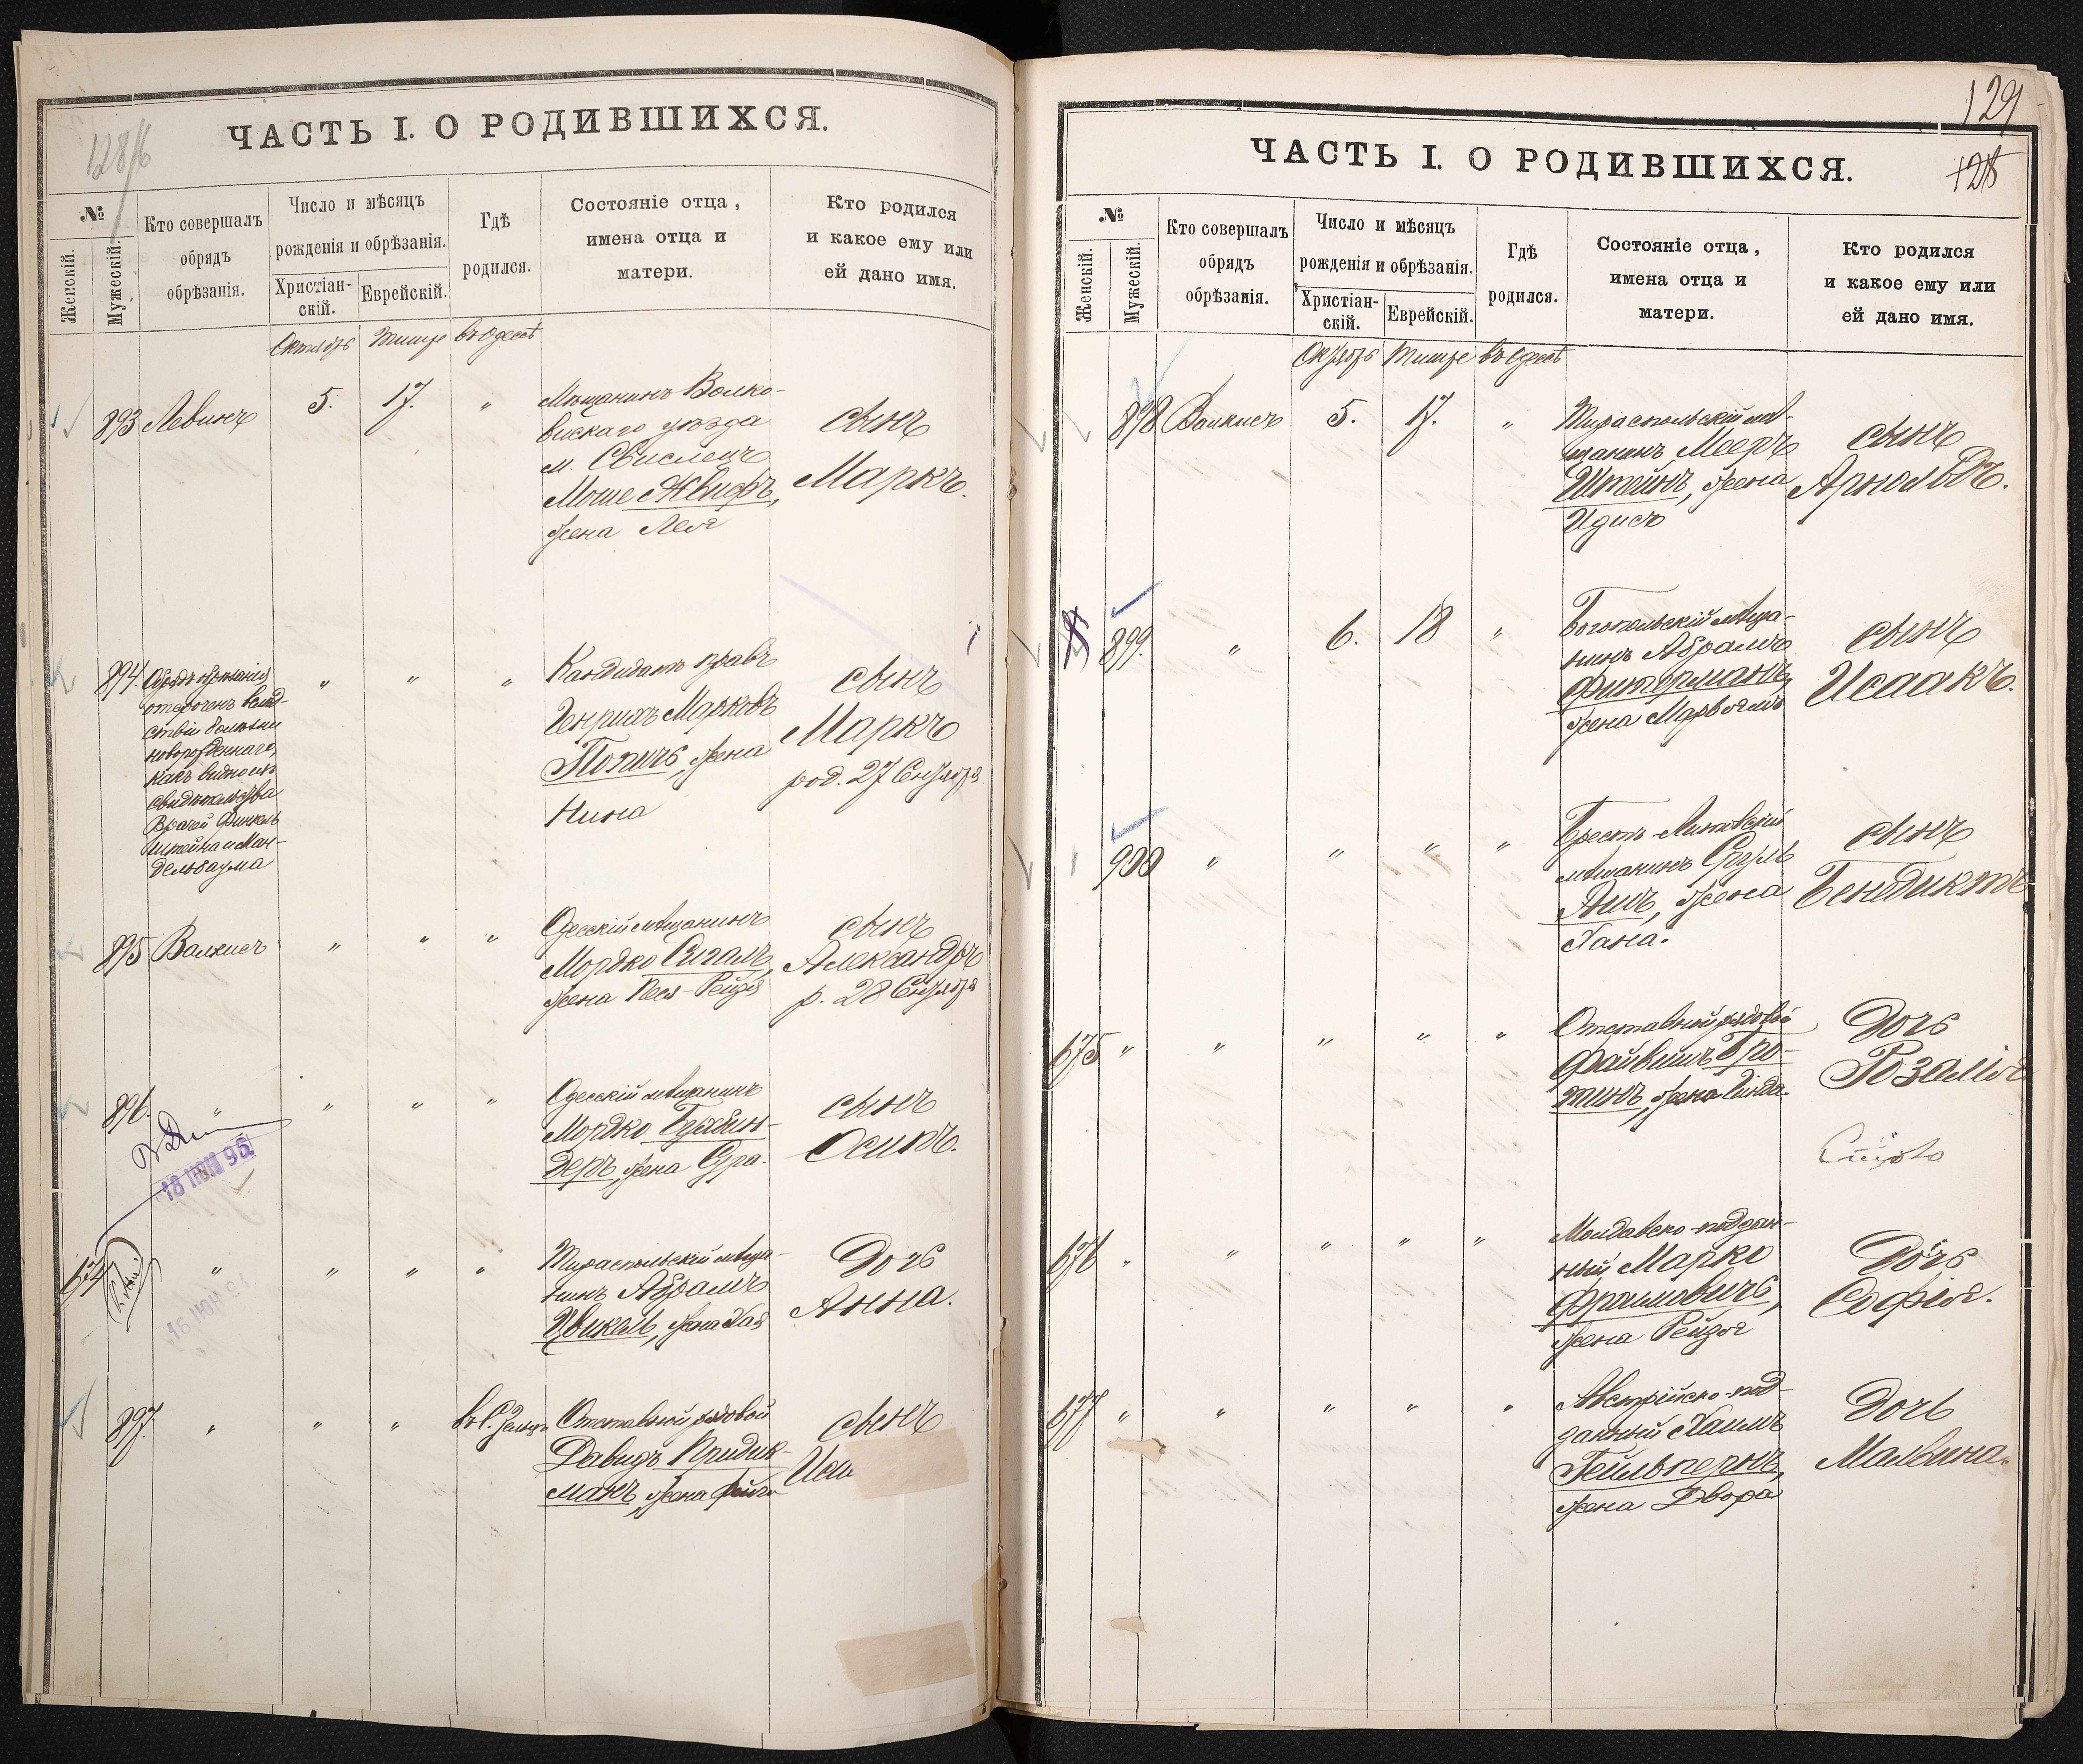 128/б
ЧАСТЬ I. О РОДИВШИХСЯ.
№
Женскій.
Мужескій.
Кто совершалъ
обрядъ
обрѣзанія.
Число и мѣсяцъ
рожденія и обрѣзанія.
Христіан-
скій.
Еврейскій.
Гдѣ
родился.
Состояніе отца,
имена отца и
матери.
Кто родился
и какое ему или
ей дано имя.
Октябрь Тишре въ Одессѣ
893 Левинъ 5. 17. "
Мѣщанинъ Волко-
вискаго уѣзда
м. Свислечъ
Моше Жвифъ,
жена Лея
сынъ
Маркъ.
894. Обрядъ обрѣзанія
отсроченъ вслѣд-
ствіи болѣзни
новорожденнаго,
какъ видно изъ
свидѣтельства
Врачей Финкель-
штейна и Ман-
дельбаума
" " "
Кандидатъ правъ
Генрихъ Марковъ
Попичъ, жена
Нина
сынъ
Маркъ
род. 27 Сентября
895 Валкисъ " " "
Одесскій мѣщанинъ
Мордко Сигалъ,
жена Песя-Рейзя
сынъ
Александръ
р. 28 Сентября
896. " " " "
18 ІЮН 96
Одесскій мѣщанинъ
Мордко
деръ, жена Сура.
сынъ
Осипъ.
674 " " " "
Тираспольскій мѣща-
нинъ Абрамъ
Цвикель, жена Хая
Дочь
Анна.
897. " " "
Отставной рядовой
Давидъ Придик-
манъ, жена Фейга
сынъ
129
128
ЧАСТЬ I. О РОДИВШИХСЯ.
№
Женскій.
Мужескій.
Кто совершалъ
обрядъ
обрѣзанія.
Число и мѣсяцъ
рожденія и обрѣзанія.
Христіан-
скій.
Еврейскій.
Гдѣ
родился.
Состояніе отца,
имена отца и
матери.
Кто родился
и какое ему или
ей дано имя.
Октябрь Тишре въ Одессѣ
898 Валкисъ 5. 17. "
Тираспольскій мѣ-
щанинъ Мееръ
Штейнъ, жена
Идисъ
сынъ
Арнольдъ.
899. " 6. 18 "
Богопольскій мѣща-
нинъ Абрамъ
Фитерманъ,
жена Марьямъ
сынъ
Исаакъ.
900 " " " "
Брестъ-Литовскій
мѣщанинъ Сруль
Ашъ, жена
Хана.
сынъ
Бендиктъ
675 " " " " "
Отставной рядовой
Файвишъ Бро-
тинъ, жена Гинда.
Дочь
Розалія
676 " " " " "
Молдавско-поддан-
ный Марко
Фраимовичъ,
жена Рейзя
Дочь
Софія.
677 " " " " "
Австрійско-под-
данный Хаимъ
Гейльпернъ,
жена Двора
Дочь
Мальвина.